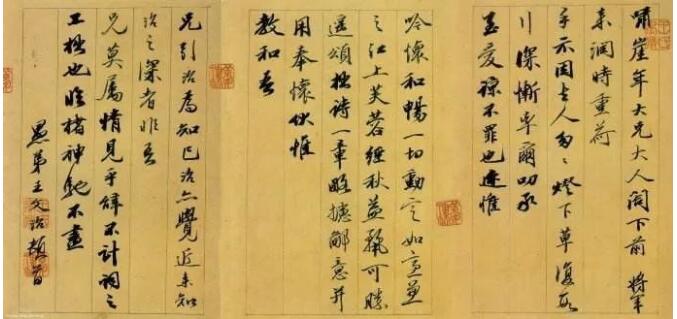 啸崖年大兄大人阁下前 将军
来润时重荷
手示因去人匆匆灯下草复
深惭
爱谅不罪也
吟怀和畅一切勋定如意
之江上芙蓉经秋益丽可胜
遥颂拙诗一章略摅鄙意并
用奉怀伏惟
教和 吾
兄引治为知己治亦觉近来知
治之深者非吾
兄莫属情见乎辞不计词之
工拙也临楮神驰不尽
愚弟王文治顿首